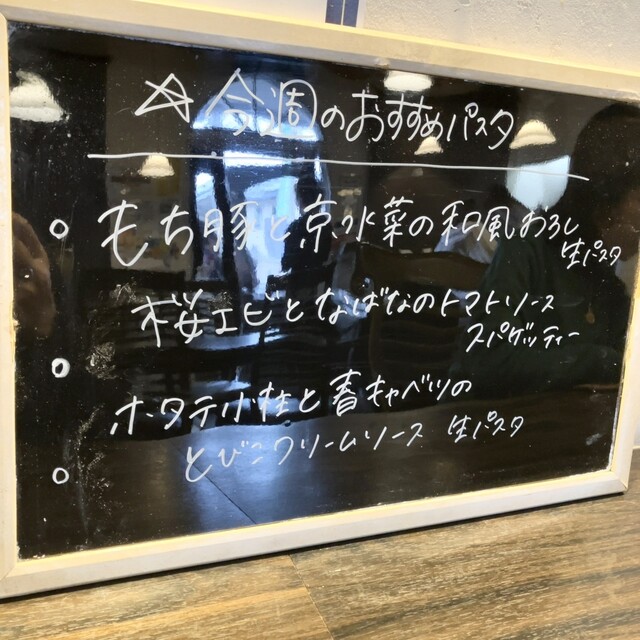 ☆今週のおすすめパスタ
○ もち豚と京水菜の和風おろし
生パスタ
○ 桜エビとなばなのトマトソース
スパゲッティー
○ ホタテ小柱と春キャベツの
とびこクリームソース 生パスタ